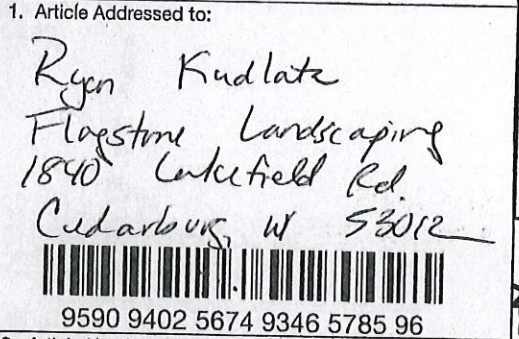 1. Article Addressed to:
Ryan Kudlata
Flagstone Landscaping
1840 Lakefield Rd.
Cedarburg, WI 53012
9590 9402 5674 9346 5785 96